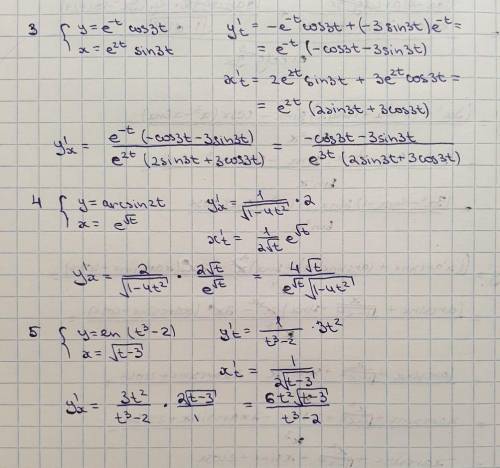 3 { y = e^{-t} cos3t   y'_t = -e^{-t} cos3t + (-3 sin3t) e^{-t} =
x = e^{2t} sin3t   = e^{-t} (-cos3t - 3sin3t)
x'_t = 2e^{2t} sin3t + 3e^{2t} cos3t =
= e^{2t} (2sin3t + 3cos3t)
y'_x = e^{-t} (-cos3t - 3sin3t) / e^{2t} (2sin3t + 3cos3t) = -cos3t - 3sin3t / e^{3t} (2sin3t + 3cos3t)
4 { y = arcsin2t   y'_x = 1/√(1-4t²) · 2
x = e^{√t}   x'_t = 1/(2√t) e^{√t}
y'_x = 2/√(1-4t²) · 2√t/e^{√t} = 4√t / e^{√t} √(1-4t²)
5 { y = ln (t³-2)   y'_t = 1/(t³-2) · 3t²
x = √(t-3)   x'_t = 1/(2√(t-3))
y'_x = 3t²/(t³-2) · 2√(t-3)/1 = 6t²√(t-3) / (t³-2)